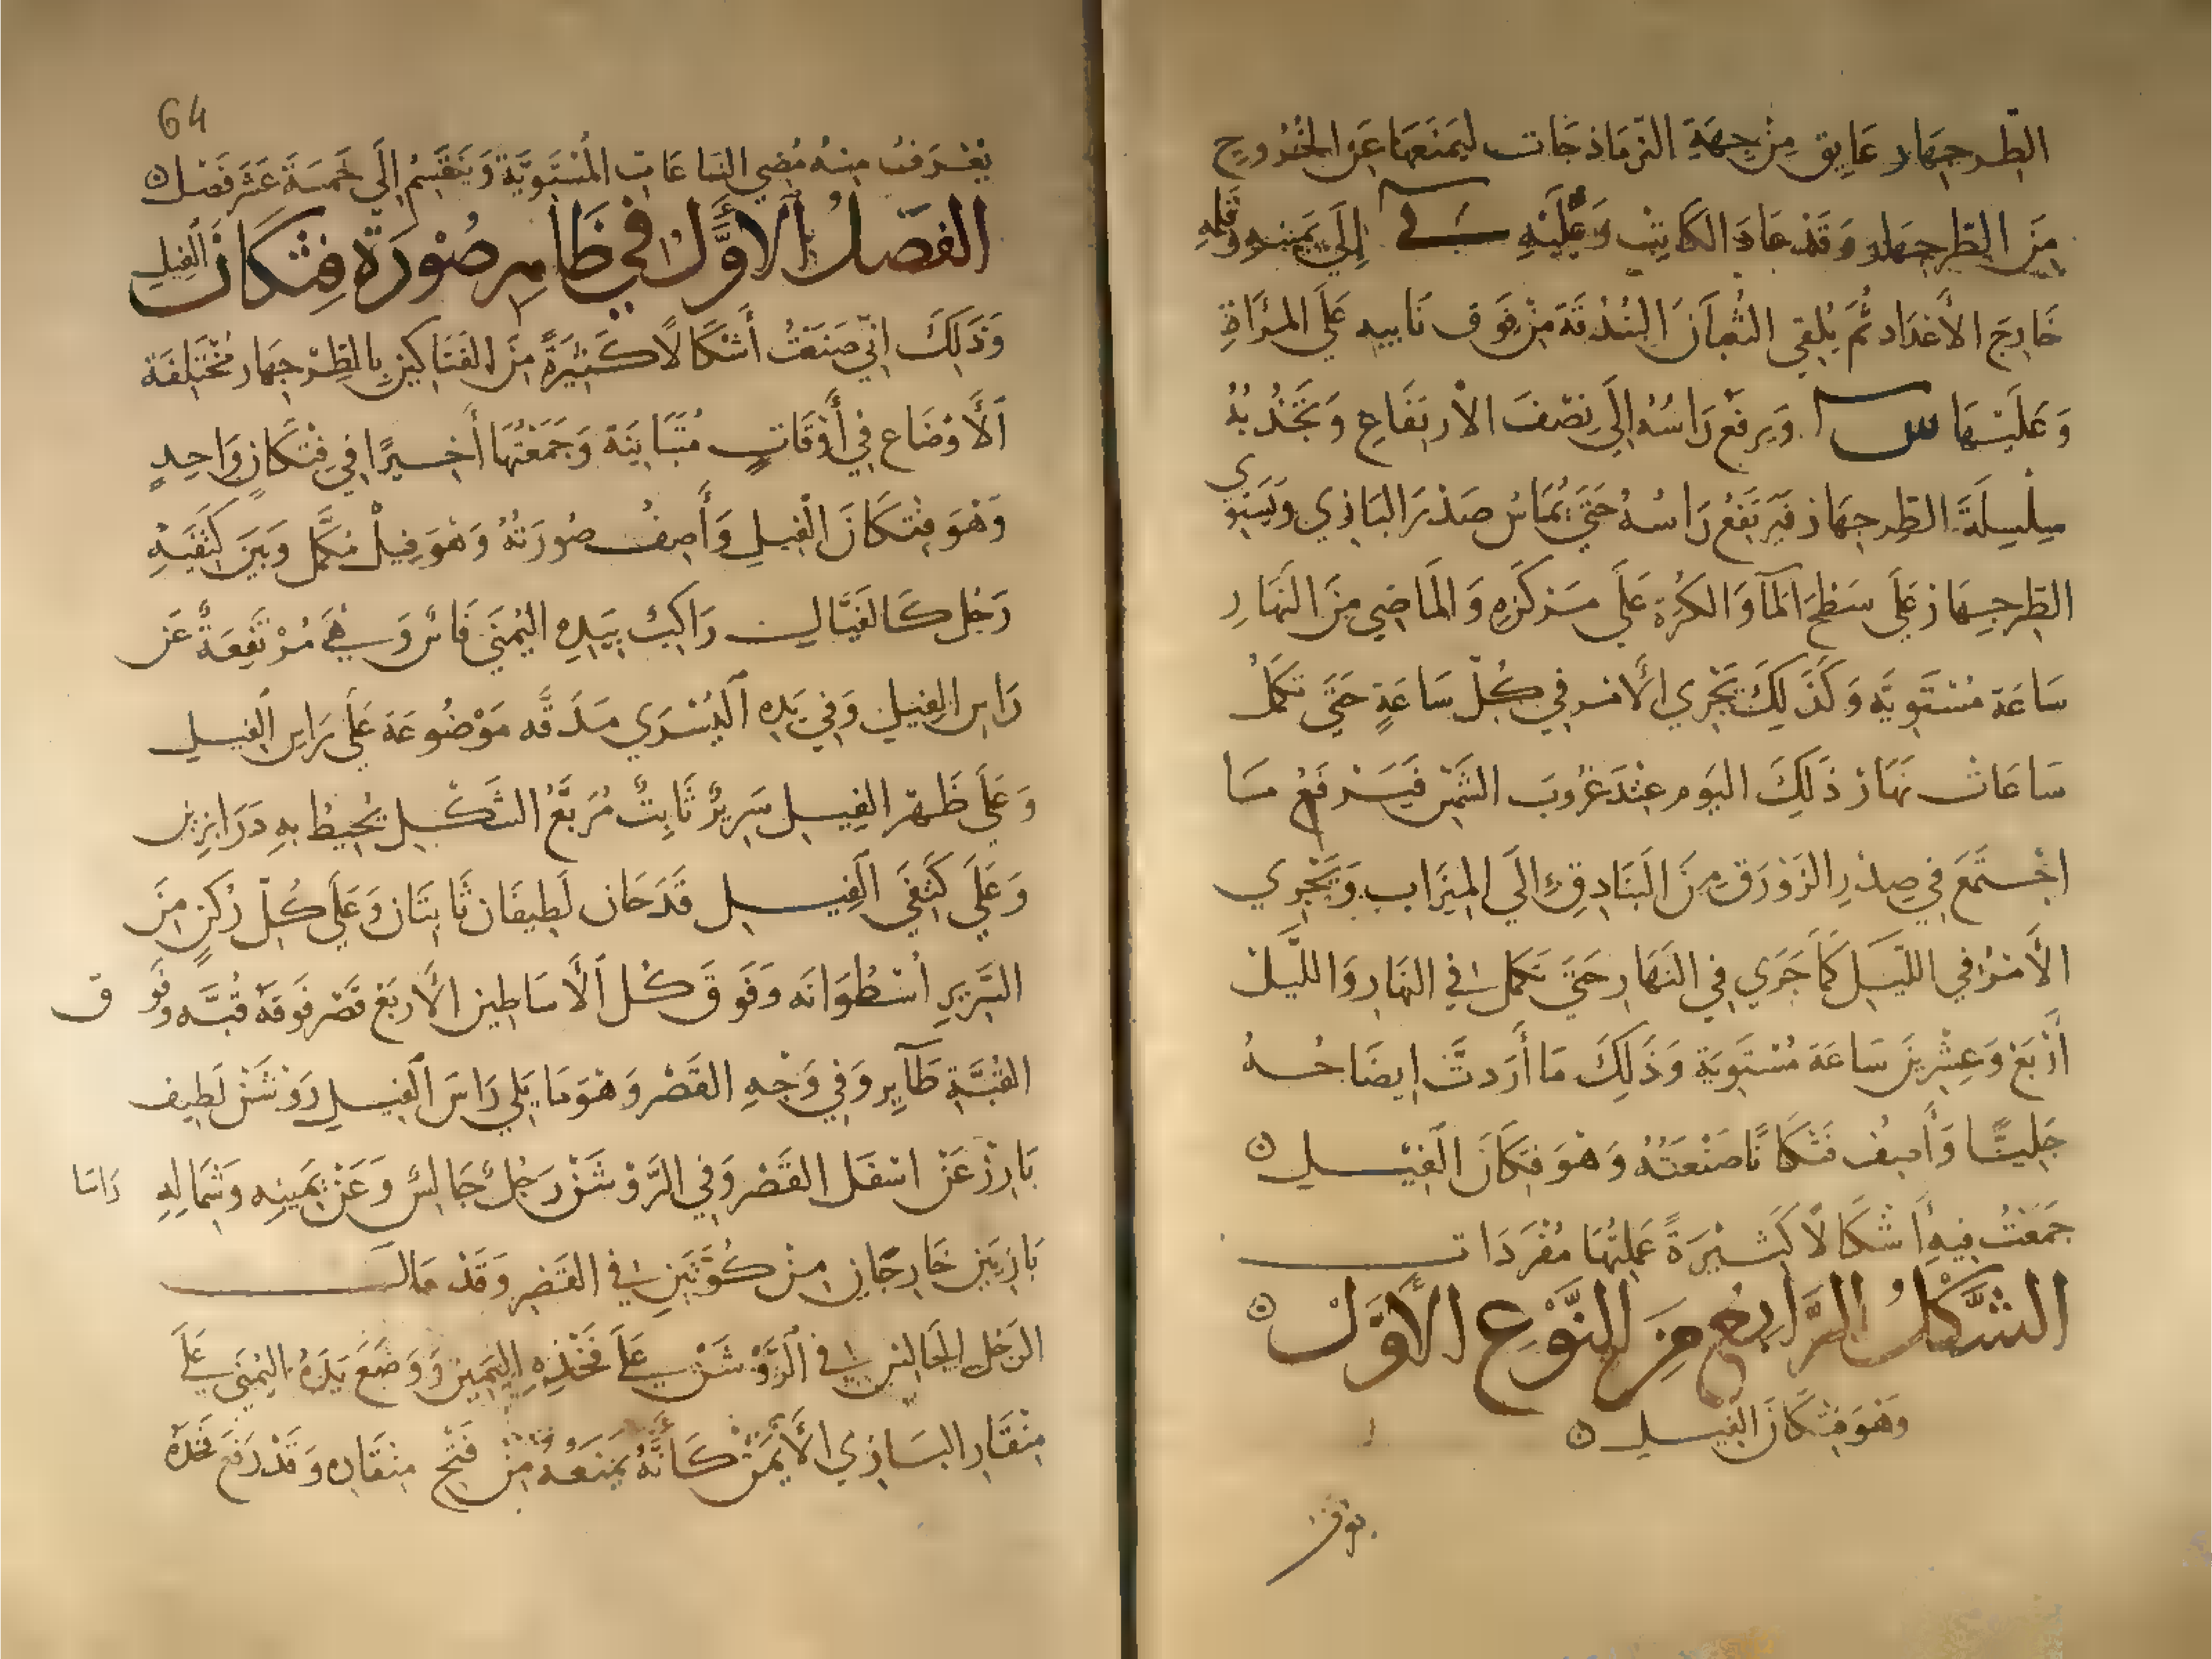 الطرجهار عايق من جهة النرماذجات ليمنعها عن الخروج
من الطرجهار وقد عاد الكاتب وعليه إلى يمينه وقلمه
خارج الأعداد ثم يلقي الثعبان البندقة من فوق نابيه على المرآة
وعليتها س ويرفع راسه إلى نصف الارتفاع وتجذب
سلسلة الطرجهار فيرتفع راسه حتى يماس صدر البازي ويستوي
الطرجهار على سطح المآ والكرة على مركزه والماضي من النهار
ساعة مستوية وكذلك يجري الأمر في كل ساعة حتى تكمل
ساعات نهار ذلك اليوم عند غروب الشمس فيرفع ما
اجتمع في صدر الزورق من البنادق إلى الميزاب ويجري
الأمر في الليل كما جرى في النهار حتى تكمل في النهار والليل
أربع وعشرين ساعة مستوية وذلك ما أردت إيضاحه
جليا وأصف فنكانا صنعته وهو فنكان الفيل
جمعت فيه أشكالا كثيرة عملتها مفردات
الشكل الرابع من النوع الأول
وهو فنكان الفيل
64
يعرف منه مضي الساعات المستوية وينقسم إلى خمسة عشر فصل
الفصل الأول في ظاهر صورة فنكان الفيل
وذلك اني صنعت أشكالا كثيرة من الفناكين بالطرجهار مختلفة
الأوضاع في أوقات متباينة وجمعتها أخيرا في فنكان واحد
وهو فنكان الفيل وأصف صورته وهو فيل مكمل وبين كتفيه
رجل كالفيال راكب بيده اليمنى فاس وهي مرتفعة عن
راس الفيل وفي يده اليسرى مدقه موضوعة على راس الفيل
وعلى ظهر الفيل سرير ثابت مربع الشكل يحيط به درابزين
وعلى كتفي الفيل قدحان لطيفان ثابتان وعلى كل ركن من
السرير اسطوانه وفوق كل الأساطين الأربع قصر فوقه قبه وفوق
القبة طآير وفي وجه القصر وهو مما يلي راس الفيل روشن لطيف
بارز عن اسفل القصر وفي الروشن رجل جالس وعن يمينه وشماله راسا
بازيين خارجان من كوتين في القصر وقد مال
الرجل الجالس في الروشن على فخذه اليمين ووضع يده اليمنى على
منقار البازي الأيمن كأنه يمنعه من فتح منقاره وقد رفع فخذه